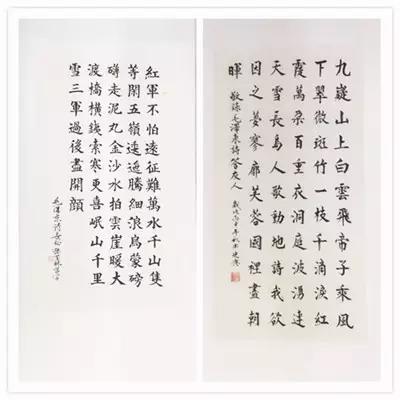 紅軍不怕遠征難萬水千山隻
等閒五嶺逶迤騰細浪烏蒙磅
礴走泥丸金沙水拍雲崖暖大
渡橋橫鐵索寒更喜岷山千里
雪三軍過後盡開顏
毛澤東詩長征
九嶷山上白雲飛帝子乘風
下翠微斑竹一枝千滴淚紅
霞萬朵百重衣洞庭波湧連
天雪長島人歌動地詩我欲
因之夢寥廓芙蓉國裡盡朝
暉 敬錄毛澤東詩答友人